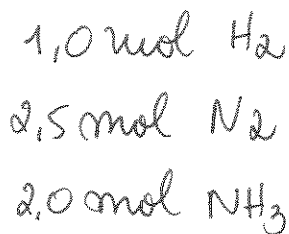 1,0 mol H2
2,5 mol N2
2,0 mol NH3